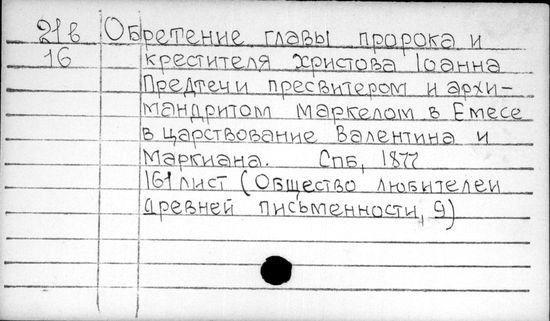 21в Обретение главы пророка и
16 крестителя христова Iоанна
Предтечи пресвитером и архи-
мандритом Маркелом в Емесе
в царствование Валентина и
Маркиана. Спб, 1877
161 лист (Общество любителей
древней письменности, 9)